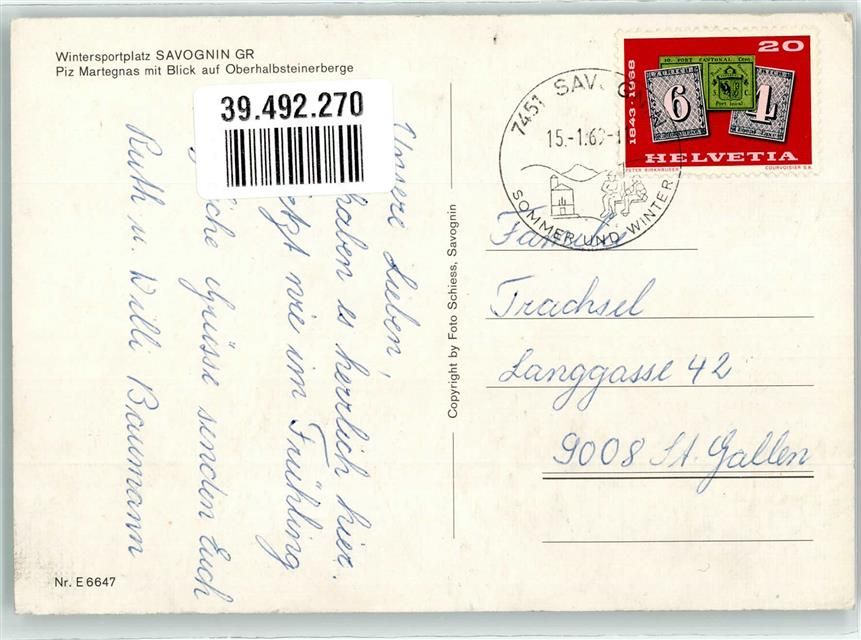 Wintersportplatz SAVOGNIN GR
Piz Martegnas mit Blick auf Oberhalbsteinerberge
39.492.270
Unsere Lieben,
haben es herrlich hier.
wie im Frühling
Grüsse senden Euch
Ruth u. Willi Baumann
Nr. E 6647
Copyright by Foto Schiess, Savognin
7451 SAVOGNIN
15.-1.69
SOMMER UND WINTER
20
1843-1968
10. PORT CANTONAL. Cent.
ZURICH
6
5. C.
Port local
4
HELVETIA
PETER BIRKHÄUSER
COURVOISIER S.A.
Familie
Trachsel
Langgasse 42
9008 St. Gallen